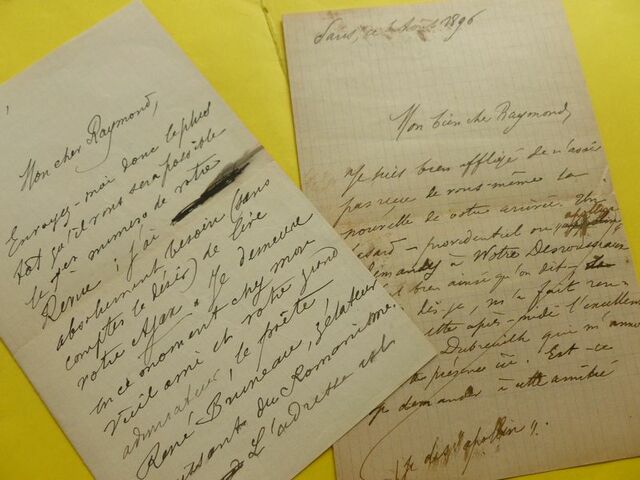 Mon cher Raymond,
Envoyez-moi donc le plus
tôt qu'il vous sera possible
le 1er numéro de votre
Revue ; j'ai
absolument besoin (sans
compter le désir) de lire
votre Ajax. Je demeure
en ce moment chez mon
vieil ami et votre grand
admirateur, le poète
René Bruneau, zélateur
du Romanisme.
L'adresse est
Paris, ce Août 1896
Mon bien cher Raymond,
Je suis bien affligé de n'avoir
pas reçu de vous-même la
nouvelle de votre arrivée. Un
hasard - providentiel ou apollonien
à Notre Desrousseaux
bien ainsi qu'on dit -
dis-je, m'a fait ren-
cette après-midi l'excellent
Dubreuilh qui m'annonce
présence ici. Est-ce
demander à cette amitié